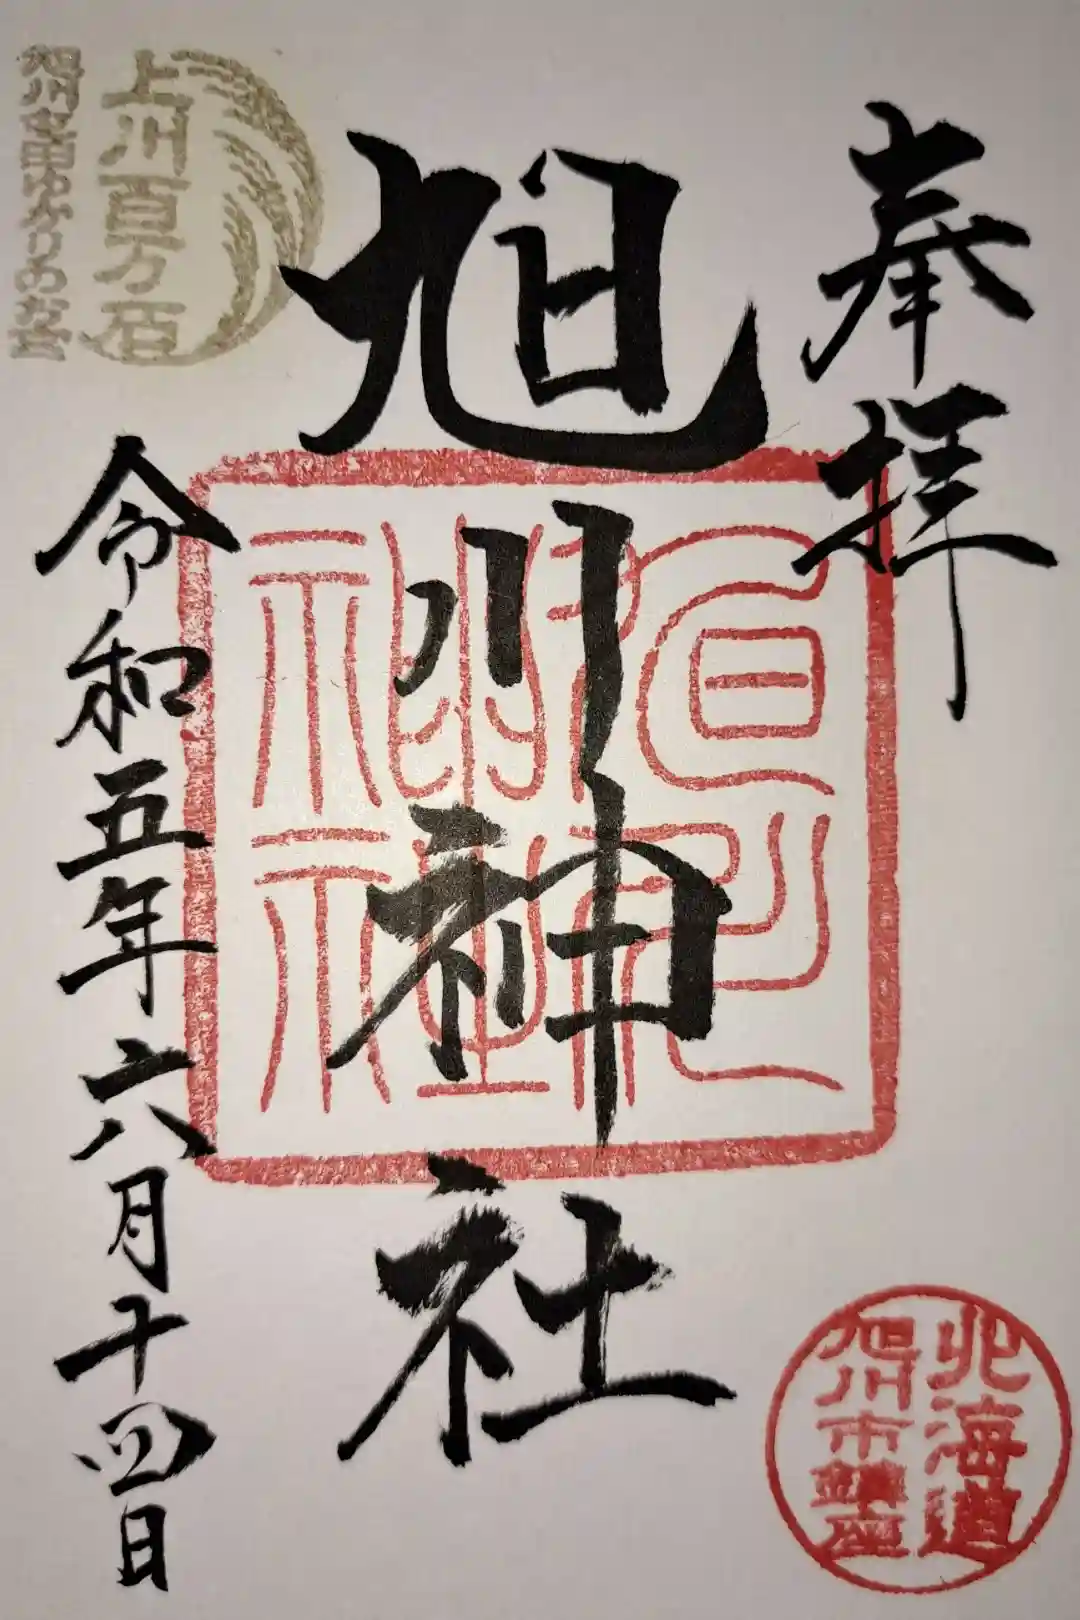 奉拝
旭川神社
旭川神社
令和五年六月十四日
上川百万石
北海道
旭川市鎮座